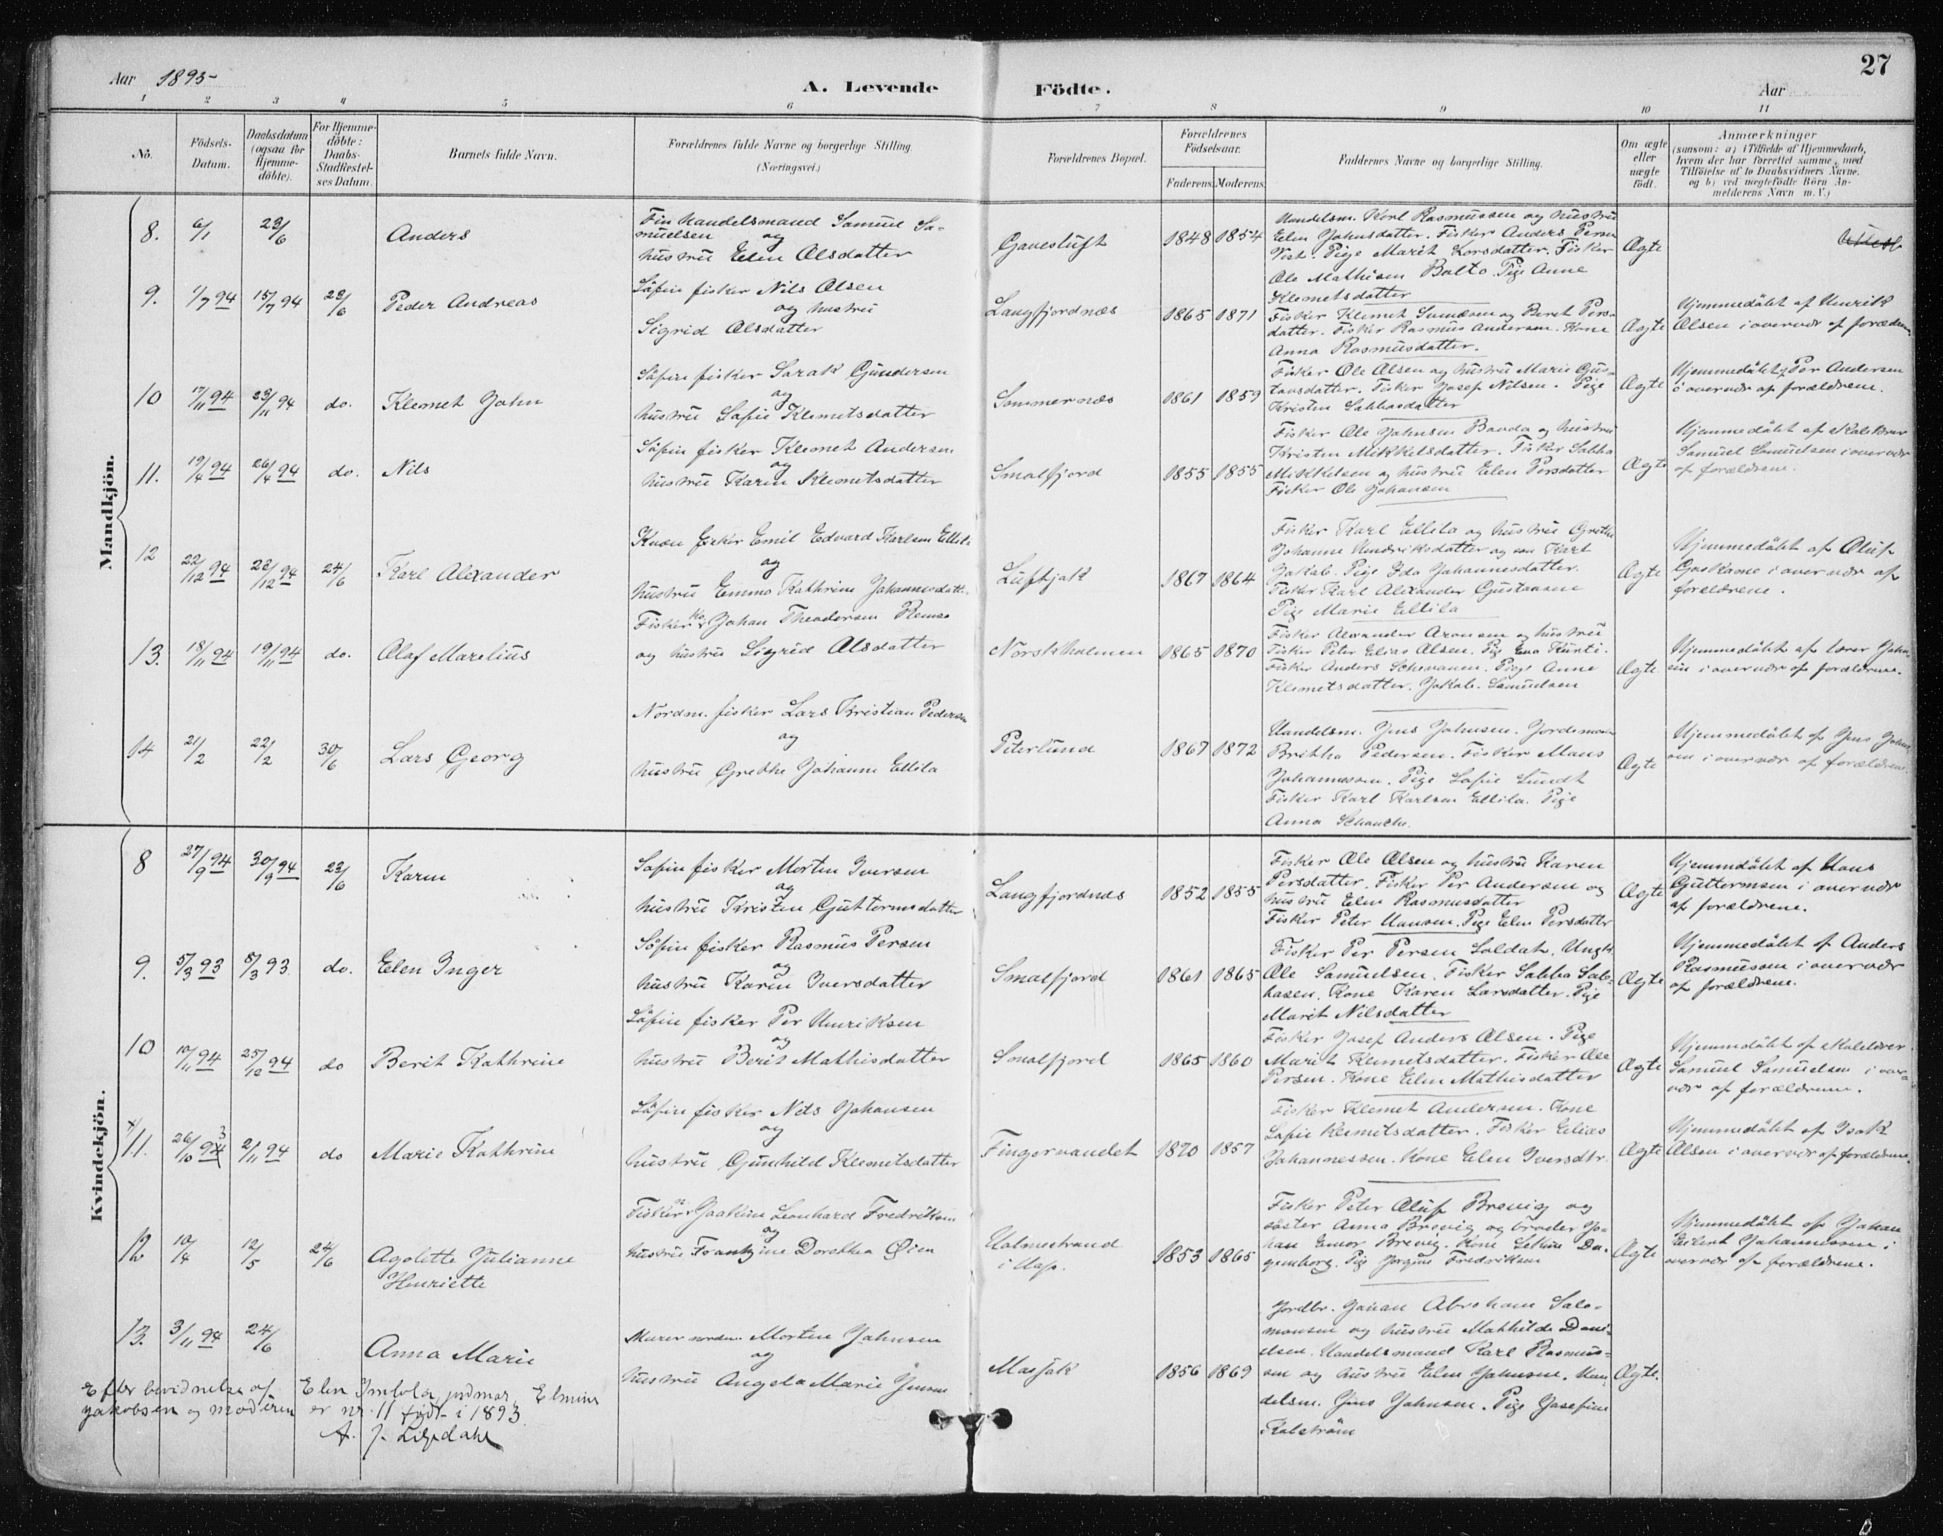 27
Aar 1895- A. Levende Födte. Aar
1 2 3 4 5 6 7 8 9 10 11
No.
Födsels-
Datum.
Daabsdatum
(ogsaa for
Hjemme-
döbte).
For Hjemme-
döbte:
Daabs-
Stadfæstel-
ses Datum.
Barnets fulde Navn.
Forældrenes fulde Navne og borgerlige Stilling.
(Næringsvei.)
Forældrenes Bopæl.
Forældrenes
Födselsaar.
Faderens. Moderens.
Faddernes Navne og borgerlige Stilling.
Om ægte
eller
uægte
födt.
Anmærkninger
(saasom: a) i Tilfælde af Hjemmedaab,
hvem der har forrettet samme, med
Tilföielse af to Daabsvidners Navne,
og b) ved uægtefödte Börn An-
melderens Navn m. V.)
Mandkjön.
8. 6/1 23/6 Anders
Fin Handelsmand Samuel Sa-
muelsen og
hustru Elen Olsdatter
Gavesluft 1848 1854
Handelsm. Karl Rasmussen og hustru
Elen Johnsdatter. Fisker Anders Persen
Vest. Pige Marit Larsdatter. Fisker
Ole Mathisen Balto. Pige Anne
Klemetsdatter
Ægte
9. 1/7 94 15/7 94 23/6 Peder Andreas
Söfin fisker Nils Olsen
og hustru
Sigrid Olsdatter
Langfjordnæs 1865 1871
Fisker Klemet og Beret Pers-
datter. Fisker Rasmus Andersen. Kone
Anna Rasmusdatter.
Ægte
Hjemmedöbt af Henrik
Olsen i overvær af forældrene.
10 17/11 94 23/11 94 do. Klemet John
Söfin fisker Sarak Gundersen
og
hustru Sofie Klemetsdatter
Sommernæs 1861 1859
Fisker Ole Olsen og hustru Marie Gus-
tavsdatter. Fisker Josef Nilsen. Pige
Kristen Sabbasdatter
Ægte
Hjemmedöbt Per Andersen
i overvær af forældrene.
11. 19/4 94 26/4 94 do. Nils
Söfin fisker Klemet Andersen
og
hustru Karen Klemetsdatter
Smalfjord 1855 1855
Fisker Ole Johnsen Banda og hustru
Kristen Mikkelsdatter. Fisker Sabba
Mikkelsen og hustru Elen Persdatter
Fisker Ole Johansen
Ægte
Hjemmedöbt af
Samuel Samuelsen i overvær
af forældrene.
12 22/12 94 28/12 94 24/6 Karl Alexander
Kvæn fisker Emil Edvard Karlsen Ellila
og
hustru Emma Kathrine Johannesdatt.
Luftjok 1867 1864
Fisker Karl Ellila og hustru Grethe
Johanne Hendriksdatter og søn Karl
Jakob. Pige Ida Johannesdatter.
Fisker Karl Alexander Gustavsen
Pige Marie Ellila
Ægte
Hjemmedöbt af Oluf
i overvær af
forældrene.
13. 18/11 94 19/11 94 do. Olaf Marelius
Fisker Johan Theodorsen
og hustru Sigrid Olsdatter
Norskholmen 1865 1870
Fisker Alexander Aronsen og hustru
Fisker Peter Elias Olsen. Pige Eva Kurti.
Fisker Anders. Pige Anne
Klemetsdatter. Jakob Samuelsen
Ægte.
Hjemmedöbt af lærer Johan-
sen i overvær af forældrene.
14 21/2 22/2 30/6 Lars Georg
Nordm. fisker Lars Kristian Pedersen
og
hustru Grethe Johanne Ellila
Peterlund 1867 1872
Handelsm. Jens Johnsen. Jordemor
Brithe Pedersen. Fisker Mans
Johannessen. Pige Sofie Lundt
Fisker Karl Karlsen Ellila. Pige
Anna Schanche.
Ægte
Hjemmedöbt af Jens John-
sen i overvær af forældrene.
Kvindekjön.
8 27/9 94 30/9 94 23/6 Karen
Söfin fisker Morten Iversen
og
hustru Kristen Guttormsdatter
Langfjordnæs 1852 1855
Fisker Ole Olsen og hustru Karen
Persdatter. Fisker Per Andersen og
hustru Elen Rasmusdatter
Fisker Peter Hansen. Pige Elen Persdatter
Ægte
Hjemmedöbt af Hans
Guttormsen i overvær
af forældrene.
9. 5/3 93 5/3 93 do. Elen Inger
Söfin fisker Rasmus Persen
og
hustru Karen Iversdatter
Smalfjord 1861 1865
Fisker Per Persen Saldat. Ungk.
Ole Samuelsen. Fisker Sabba Sab-
basen. Kone Karen Larsdatter. Pige
Marit Nilsdatter
Ægte
Hjemmedöbt af Anders
Rasmussen i overvær
af forældrene.
10 10/11 94 25/12 94 do Berit Kathrine
Söfin fisker Per Henriksen
og
hustru Berit Mathisdatter
Smalfjord 1865 1860
Fisker Josef Anders Olsen. Pige
Marit Klemetsdatter. Fisker Ole
Persen. Kone Elen Mathisdatter
Ægte
Hjemmedöbt af
Samuel Samuelsen i over-
vær af forældrene.
11. 26/10 94 3 2/11 94 do Marie Kathrine
Söfin fisker Nils Johansen
og
hustru Gunhild Klemetsdatter
Fingervandet 1870 1857
Fisker Klemet Andersen. Kone
Sofie Klemetsdatter. Fisker Elias
Johannessen. Kone Elen Iversdtr.
Ægte
Hjemmedöbt af Isak
Olsen i overvær af forældrene.
12 10/4 12/5 24/6 Agolette Julianne
Henriette
Fisker Joakim Leonhard Fredriksen
og
hustru Frantzine Dorothea Øien
Holmestrand
i Hop. 1853 1865
Fisker Peter Oluf Brevig og
söster Anna Brevig og broder Jo-
han Emor Brevig. Kone Da-
genborg. Pige Jorgine Fredriksen
Ægte
Hjemmedöbt af Johan
Eilert Johannessen i
overvær af forældrene.
13. 3/11 94 24/6 Anna Marie
Murer nordm. Morten Johnsen
og
hustru Angela Marie Jensen
Masjok 1856 1869
Jordbr. Johan Abraham Salo-
monsen og hustru Mathilde Dani-
elsen. Handelsmand Karl Rasmus-
sen og hustru Elen Johnsen. Han-
delsm. Jens Johnsen. Pige Josefine
Kalström
Ægte.
Efter bevidnelse af Elen jodmor, Elmine
Jakobsen og moderen er nr. 11 født i 1893
A. J. Liljedahl